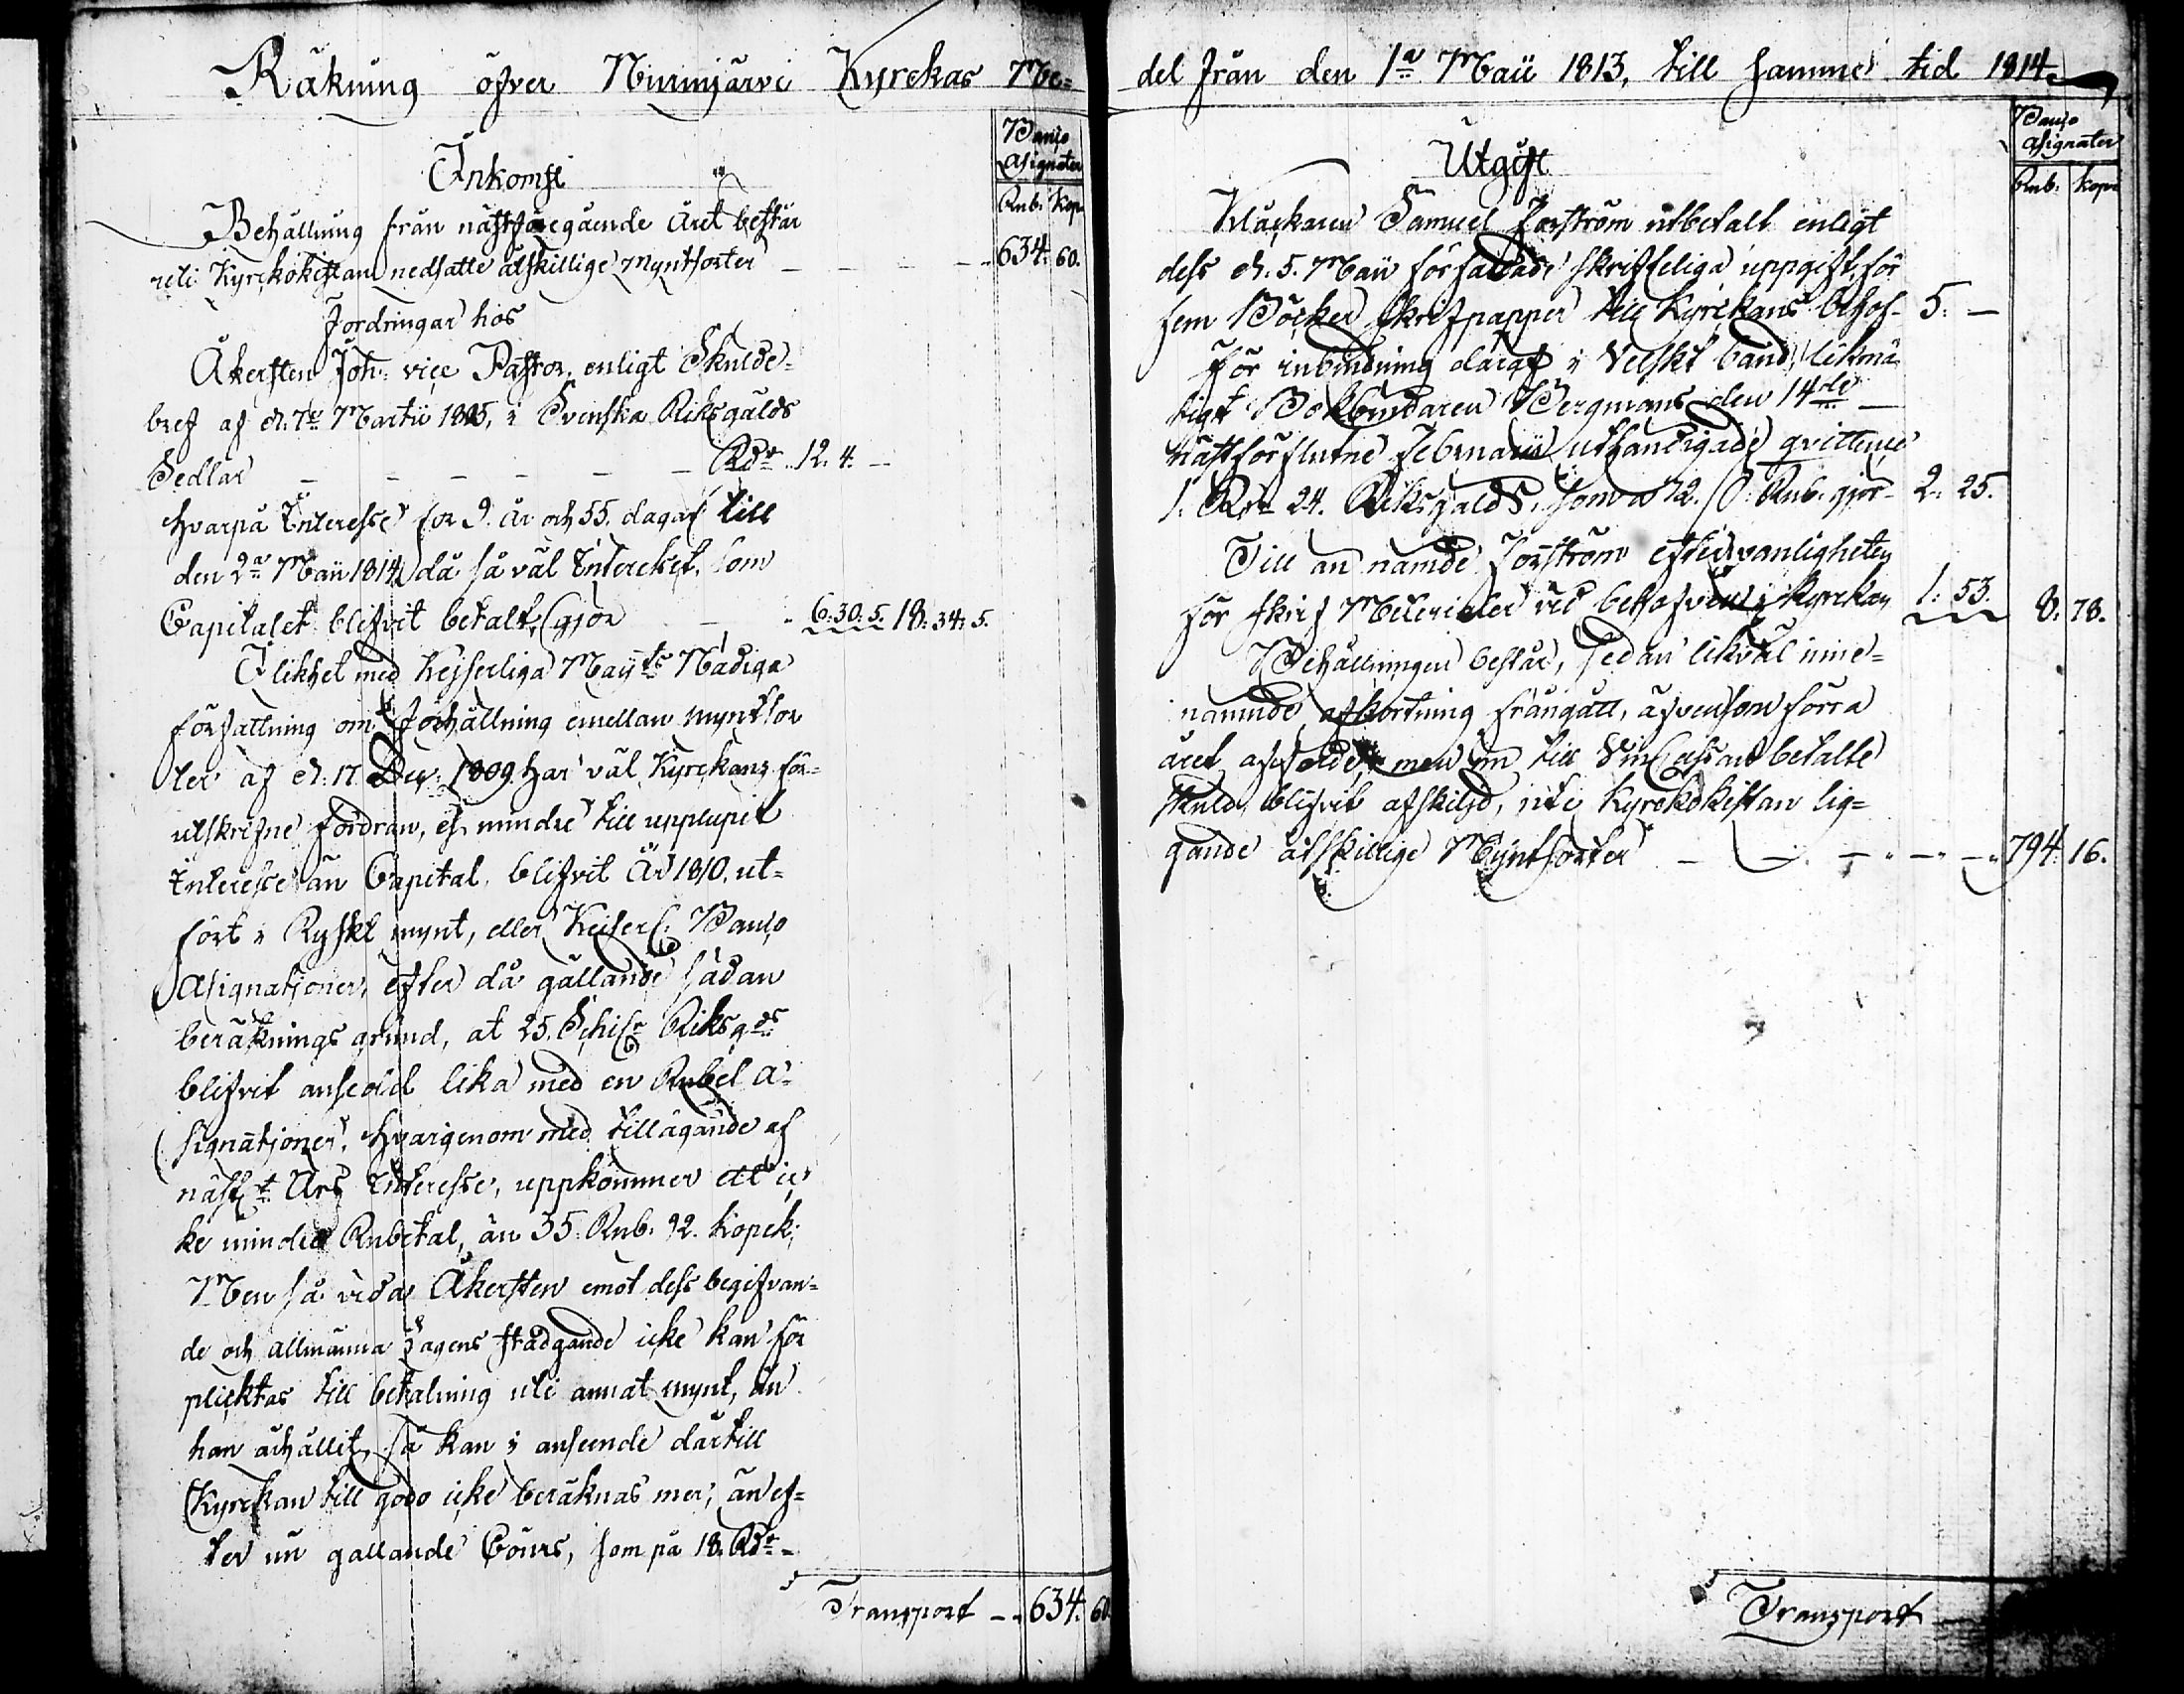 Räkning öfver Nummjärvi Kyrckas Me=
Banco
Asignater
Inkomst
Rub. Kop.
Behållning från nästföregående året består
uti Kyrckokistan nedsatte åtskillige Myntsorter — — — — 634. 60.
Fordringar hos
Åkersten Joh: vice Pastor, enligt Skulde=
bref af d. 7de Martii 1805, i Svenska Riksgälds
Sedlar — — — — — — Rdr 12. 4. —
hvarpå Interesse for 9. år och 55. dagar till
den 2a Maii 1814, då så väl Intereset, som
Capitalet blifvit betalt, gjör — 6: 30: 5. 18: 34: 5.
I likhet med Kejserliga Maijts Nådiga
författning om förhållning emellan myntsor
ter af d. 17. Dec. 1809. har väl Kyrckans för=
utskrifne fordran, ej mindre till upplupit
Interesse än Capital, blifvit År 1810. ut=
fört i Ryskt mynt, eller Keiserl: Banco
Asignationer, efter då gällande sådan
beräknings grund, at 25. Schilr Riksgds
blifvit ansedd lika med en Rubel A=
signationer. Hvarigenom med tillägande af
näst Års Interesse, uppkommer ett ic
ke mindre Rubetal, än 35. Rub. 92. Kopek;
Men så vida Åkersten emot dess begifvan=
de och allmänna Lagens stadgande icke kan för
plicktas till betalning uti annat mynt, än
han åhållit, så kan i anseende därtill
Kyrckan till godo icke beräknas mer, än ef=
ter nu gallande Cours, som på 18. Rdr —
Transport — 634. 60.
del från den 1a Maii 1813, till samme tid 1814.
Banco
Asignater
Utgift
Rub. Kop.
Klåckaren Samuel Forström utbetalt enligt
dess d. 5. Maii författade skrifteliga uppgift, för
fem Böcker skrifpapper till Kyrckans behof — 5: —
För inbindning däraf i Velskt band, likmä
tigt Bokbindaren Bergmans den 14de —
nästförflutne Februarii uthändigade qvittence
1. Rdr 24. Riksgälds, som a 72. /: Rub. gjör — 2: 25.
Till än nämde Forström efter vanligheten
för skrif Meterialer vid behofven i Kyrckan 1: 53. 8. 78.
Behållningen består, sedan likväl inne=
nämnde afkortning frångått, äfvensom förra
året men nu till betalte
skuld blifvit afskilgd, uti Kyrckokistan lig=
gande åtskillige Myntsorter — — — — — 794. 16.
Transport —